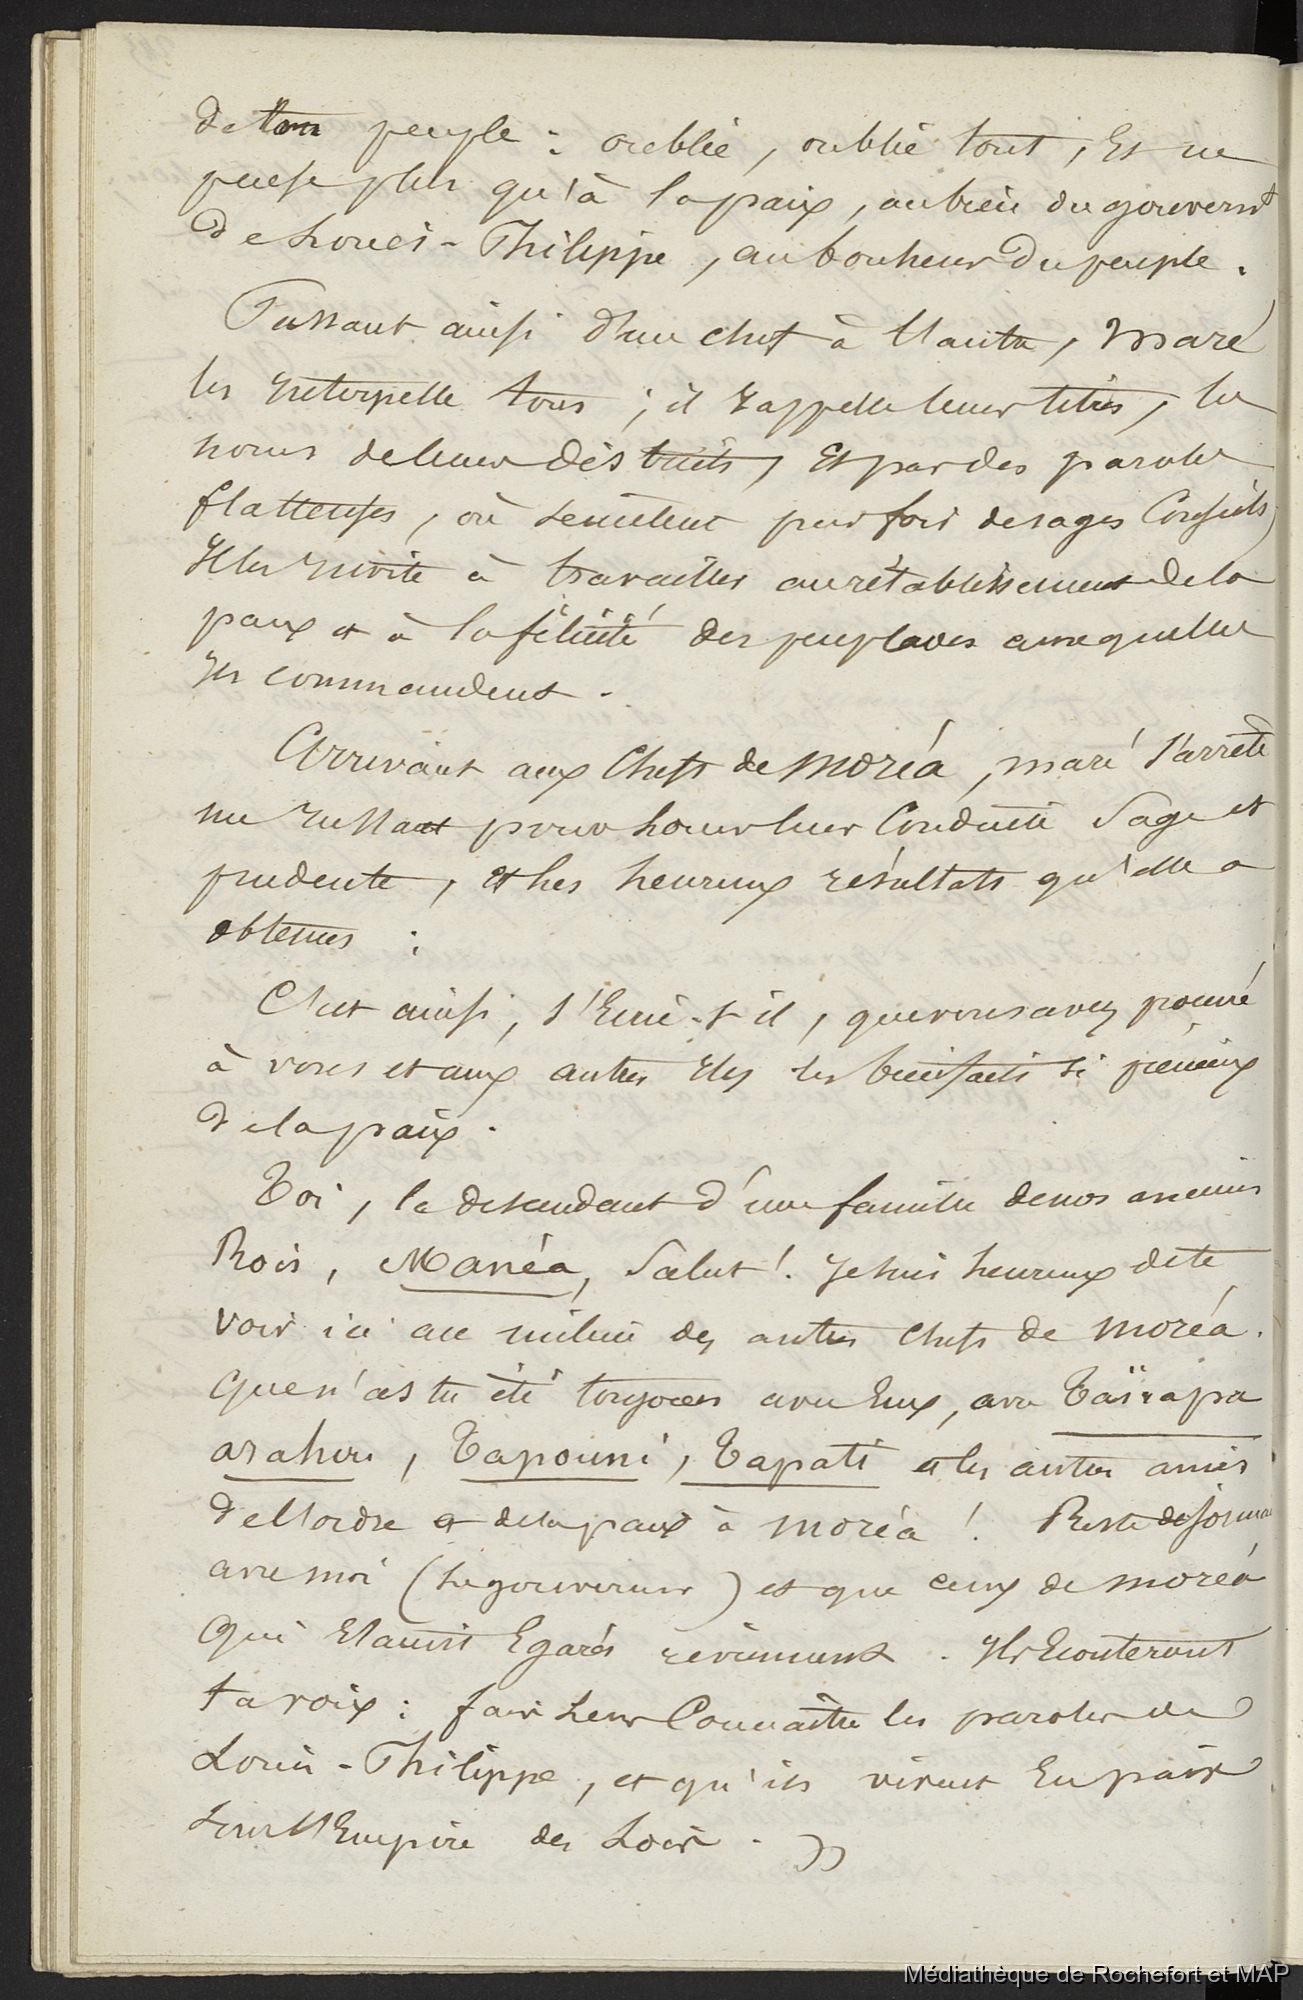 de ton peuple : oublie, oublie tout, Et ne
pense plus qu'à la paix, au bien du gouvernt
de Louis-Philippe, au bonheur du peuple.
Passant ainsi d'un chef à l'autre, Maré
les interpelle tous ; il rappelle leurs titres, les
noms de leurs districts, Et par des paroles
flatteuses, où se mêlent parfois de sages Conseils,
Il les invite à travailler au rétablissement de la
paix et à la félicité des peuplades auxquelles
ils commandent.
Arrivant aux Chefs de Moréa, Maré s'arrête
un instant pour louer leur Conduite Sage et
prudente, et les heureux résultats qu'elle a
obtenus :
C'est ainsi, s'Ecrie-t-il, que vous avez procuré
à vous et aux autres Iles les bienfaits si précieux
de la paix.
Toi, le descendant d'une famille de nos anciens
Rois, Manéa, Salut ! Je suis heureux de te
voir ici au milieu des autres chefs de Moréa.
Que n'as tu été toujours avec Eux, avec Taïrapa
arahou, Tapouni, Tapati et les autres amis
de l'ordre et de la paix à Moréa ! Reste désormais
avec moi (Le gouverneur) et que ceux de Moréa
Qui s'étaient Egarés reviennent. Ils Ecouteront
ta voix : fais Leur Connaître les paroles de
Louis-Philippe, et qu'ils vivent En paix
sous l'Empire des Lois. »
Médiathèque de Rochefort et MAP